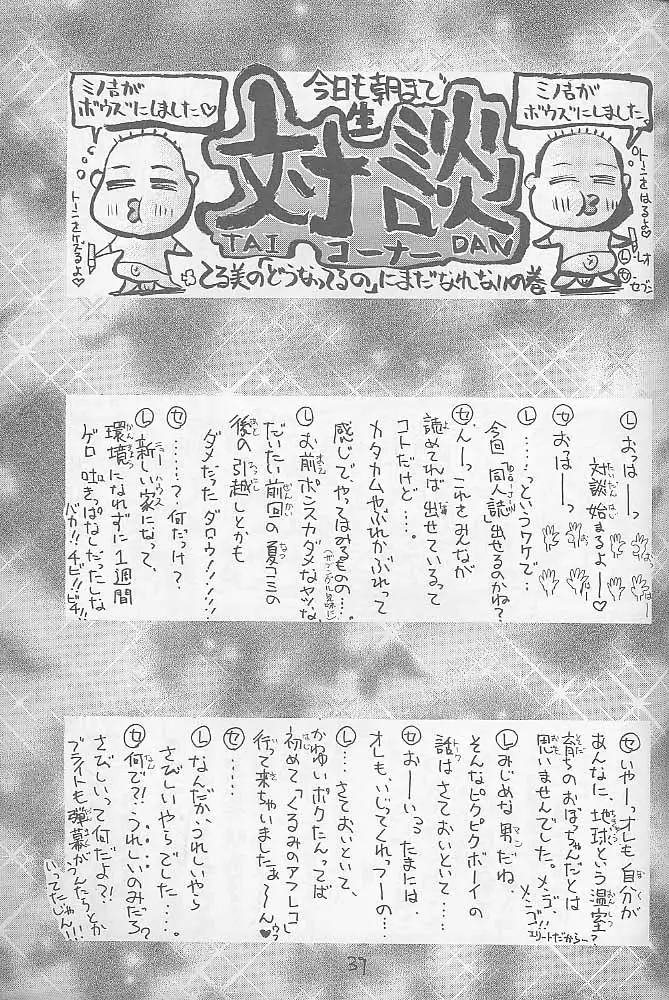 今日も朝まで
生
対談
TAI コーナー DAN
てる美の「どうなってるの」にまだなれないの巻
ミノ吉が
ボウズにしました。
トーンをはるよ♡
レオ
Ⓛ
Ⓢセブン
ミノ吉が
ボウズにしました♡
トーンをケズるよ♡
Ⓛおっはーっ
対談始まるよー♡
Ⓢおっはーっ
Ⓛ……っというワケで…
今回「同人誌」出せるのかね?
Ⓢんーっこれをみんなが
読めてれば出せているって
コトだけど…。
カタカムやぶれかぶれって
感じで、やってはみるもの…。
Ⓛお前ポンスカダメなヤツな、
だいたい前回の夏コミの
後の引越しとかも
ダメだったダロウ!!!!!
Ⓢ………?何だっけ?
Ⓛ新しい家になって、
環境になれずに1週間
ゲロ吐きっぱなしだったしな
バカ!!チビ!!ビチ!!
Ⓢいやーっオレも自分が
あんなに、地球という温室
育ちのおぼっちゃんだとは
思いませんでした。メンゴ、メンゴ!!
エリートだからー?
Ⓛみじめな男だね、
そんなピクピクボーイの
話はさておいといて…
Ⓢおーいっ たまには、
オレも、いじてくれっつーの…
Ⓛ…さておいといて、
かわゆいボクたんってば
初めて「くるみのアフレコ」
行って来ちゃいましたぁ〜ん♡ウフ
Ⓢ……
Ⓛなんだか、うれしいやら
さびしいやらでした…。
Ⓢ何で?!、うれしいのみだろ?
さびしいって何だよ?!
ブライトも弾幕がうんたらとか
いってたじゃん!!
37